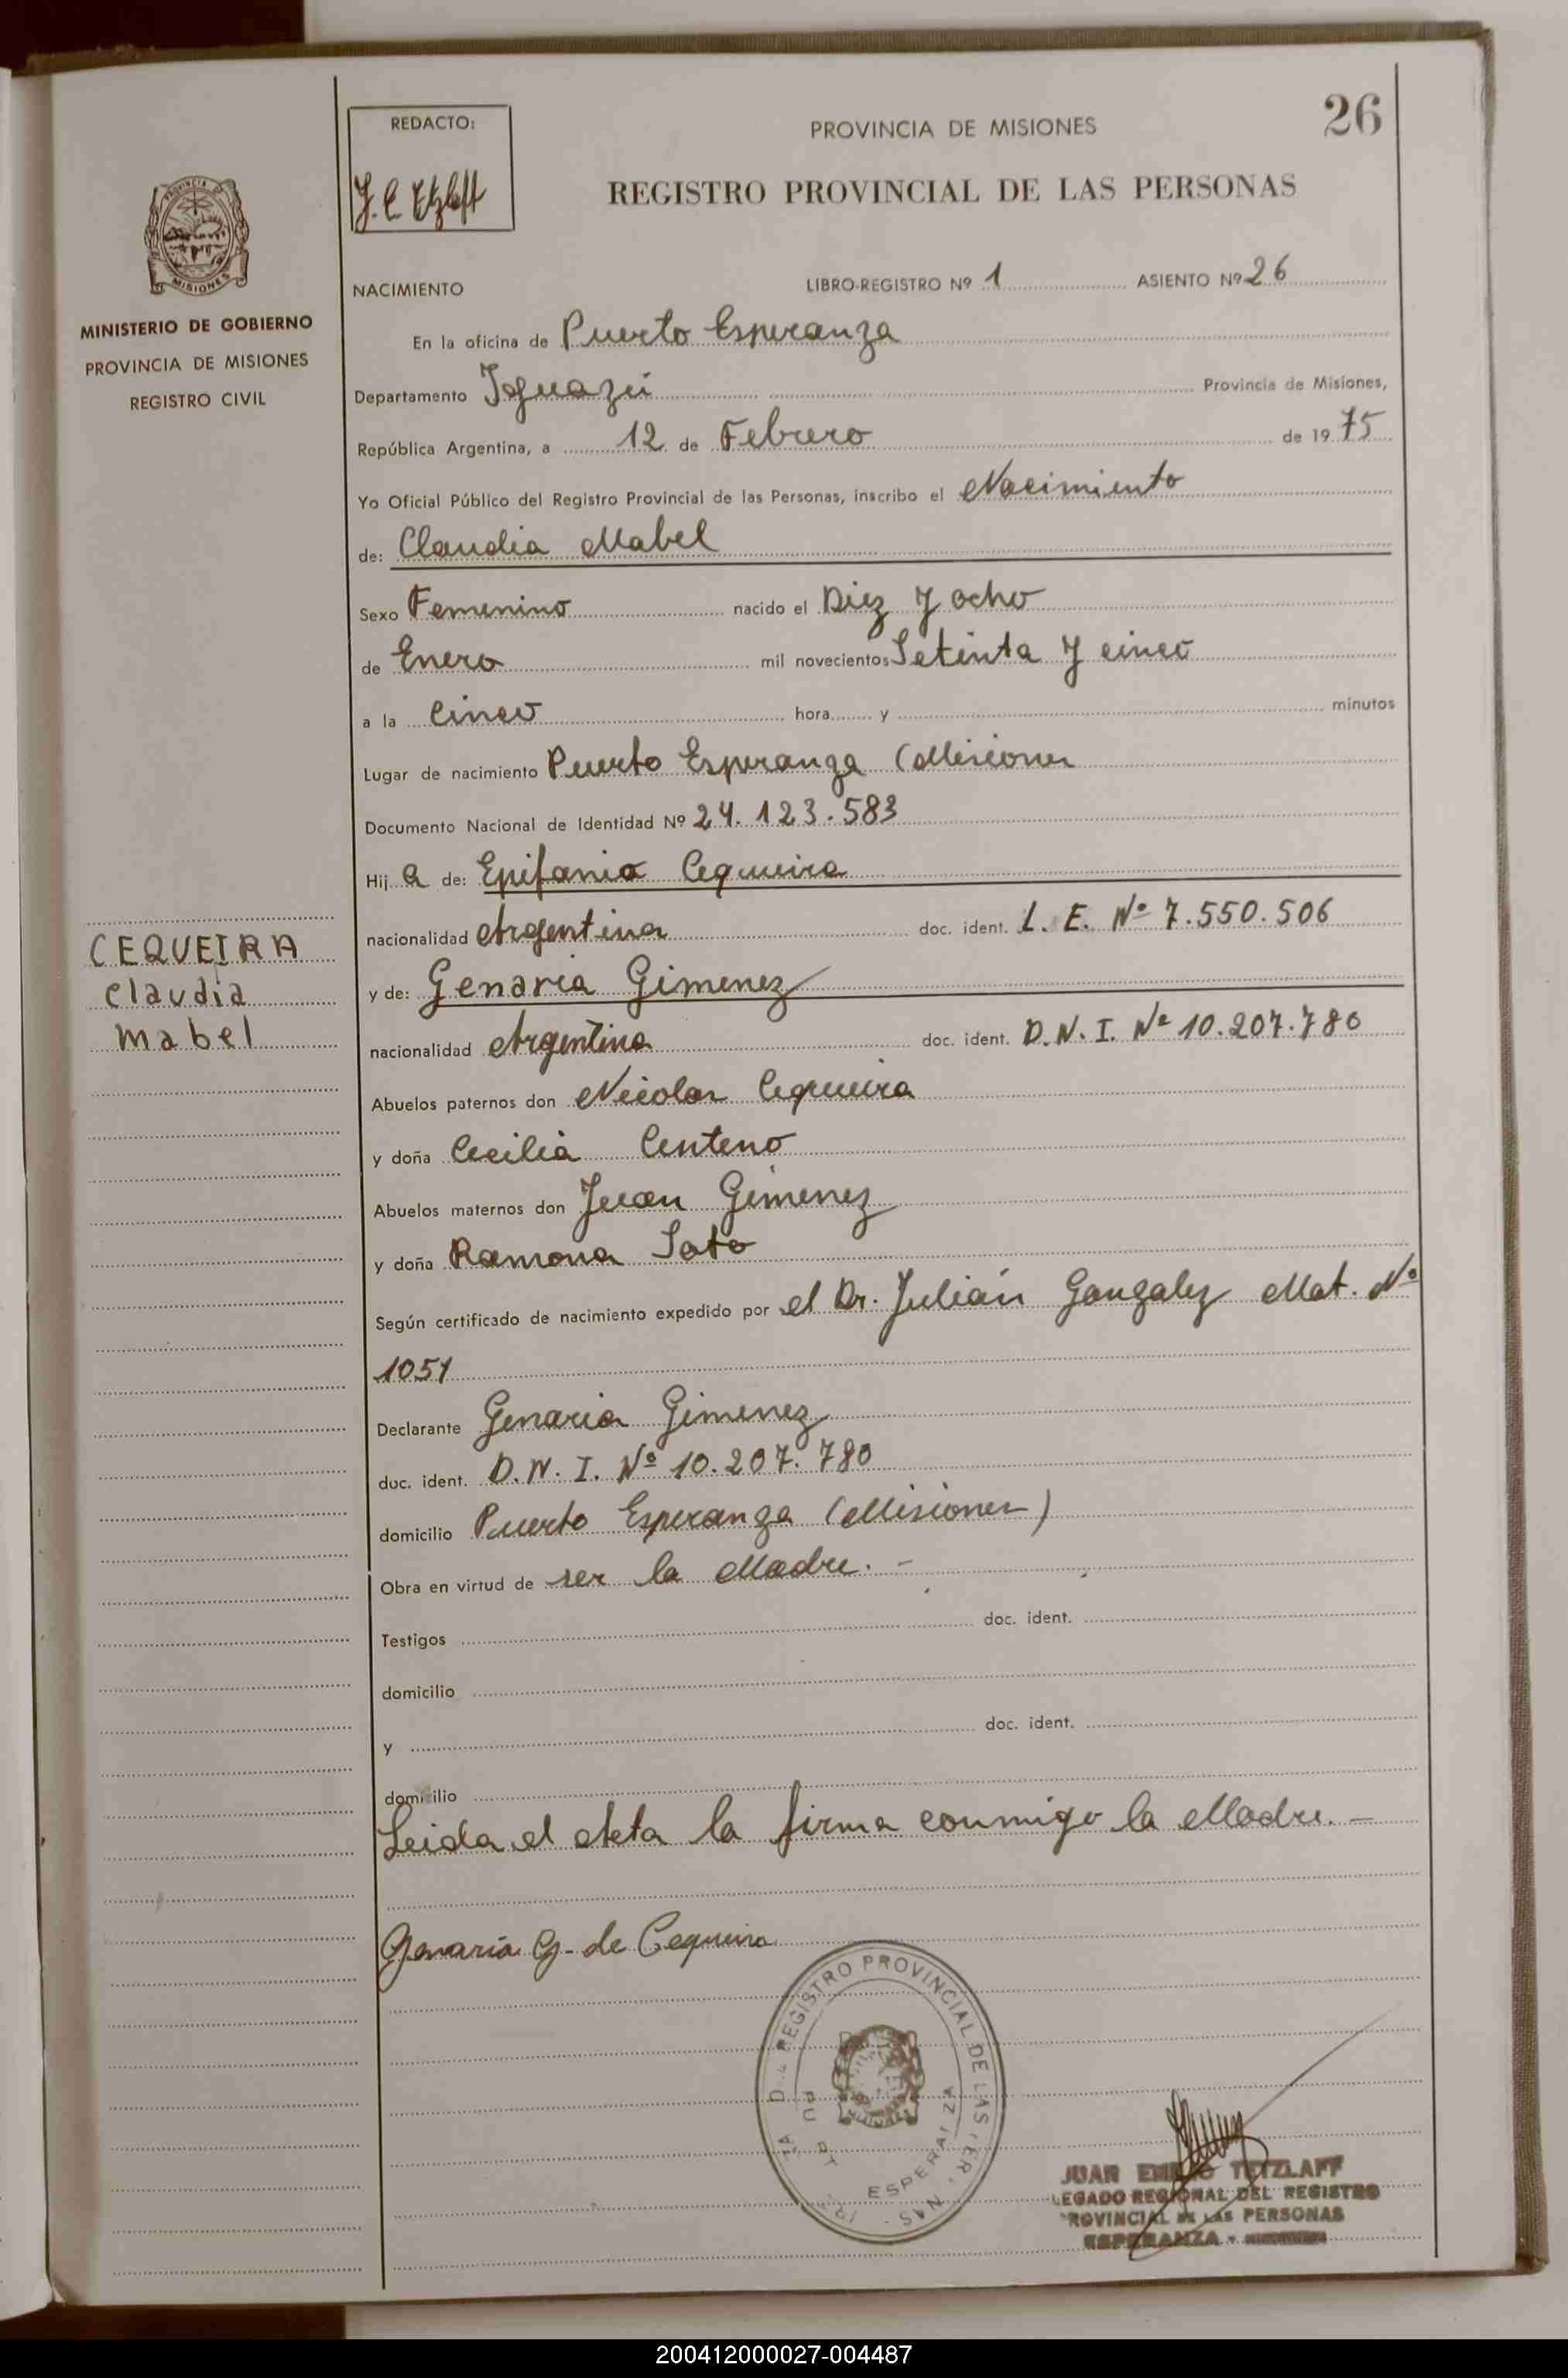 26
REDACTO:
PROVINCIA DE MISIONES
REGISTRO PROVINCIAL DE LAS PERSONAS
PROVINCIA DE
MISIONES
MINISTERIO DE GOBIERNO
PROVINCIA DE MISIONES
REGISTRO CIVIL
NACIMIENTO LIBRO-REGISTRO Nº 1 ASIENTO Nº 26
En la oficina de Puerto Esperanza
Departamento Iguazú Provincia de Misiones,
República Argentina, a 12 de Febrero de 1975
Yo Oficial Público del Registro Provincial de las Personas, inscribo el Nacimiento
de: Claudia Mabel
Sexo Femenino nacido el Diez y ocho
de Enero mil novecientos Setenta y cinco
a la Cinco hora y minutos
Lugar de nacimiento Puerto Esperanza (Misiones
Documento Nacional de Identidad Nº 24.123.583
Hij a de: Epifanio Cequeira
nacionalidad Argentina doc. ident. L. E. Nº 7.550.506
CEQUEIRA
Claudia
Mabel
y de: Genaria Gimenez
nacionalidad Argentina doc. ident. D.N.I. Nº 10.207.780
Abuelos paternos don Nicolas Cequeira
y doña Cecilia Centeno
Abuelos maternos don Juan Gimenez
y doña Ramona Soto
Según certificado de nacimiento expedido por el Dr. Julián Gonzalez Mat. Nº
1051
Declarante Genaria Gimenez
doc. ident. D.N.I. Nº 10.207.780
domicilio Puerto Esperanza (Misiones)
Obra en virtud de ser la Madre. -
Testigos doc. ident.
domicilio
y doc. ident.
domicilio
Leida el Acta la firma conmigo la Madre. -
Genaria G. de Cequeira
REGISTRO PROVINCIAL DE LAS
JUAN TETZLAFF
LEGADO REGIONAL DEL REGISTRO
PROVINCIAL DE LAS PERSONAS
ESPERANZA -
200412000027-004487